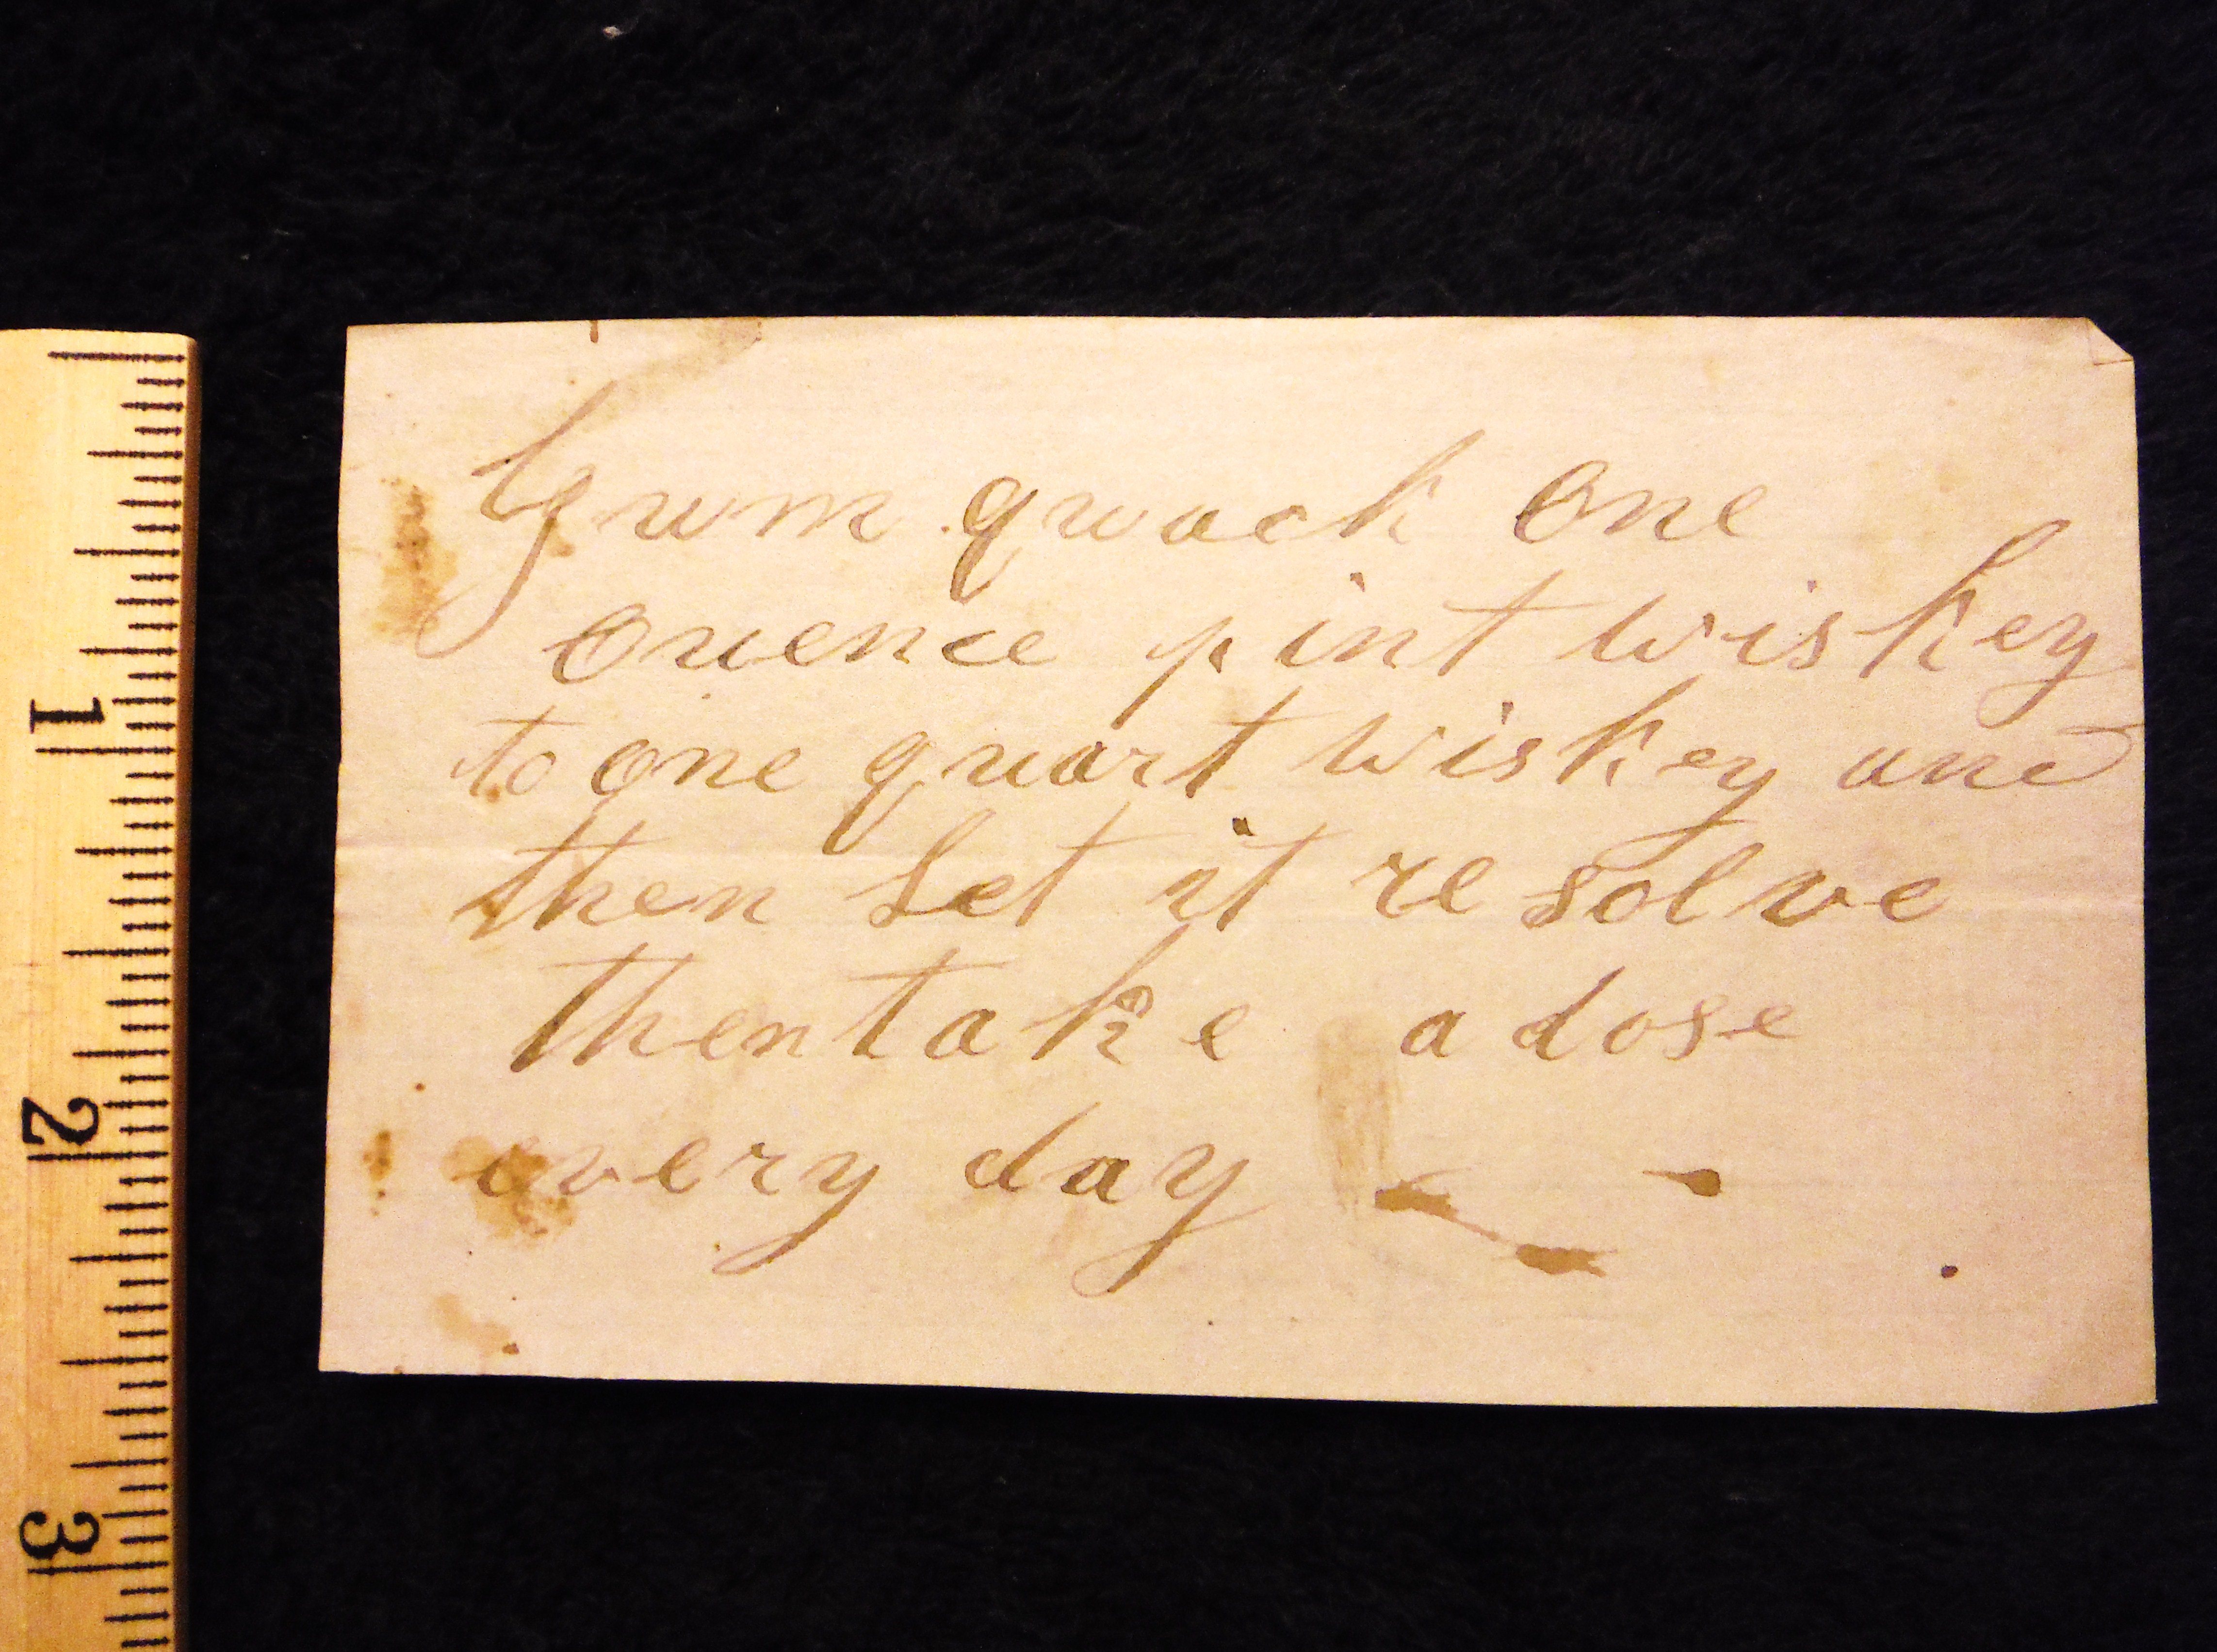 Gum quack one
ouence pint wiskey
to one quart wiskey and
then let it resolve
then take a dose
every day
1
2
3